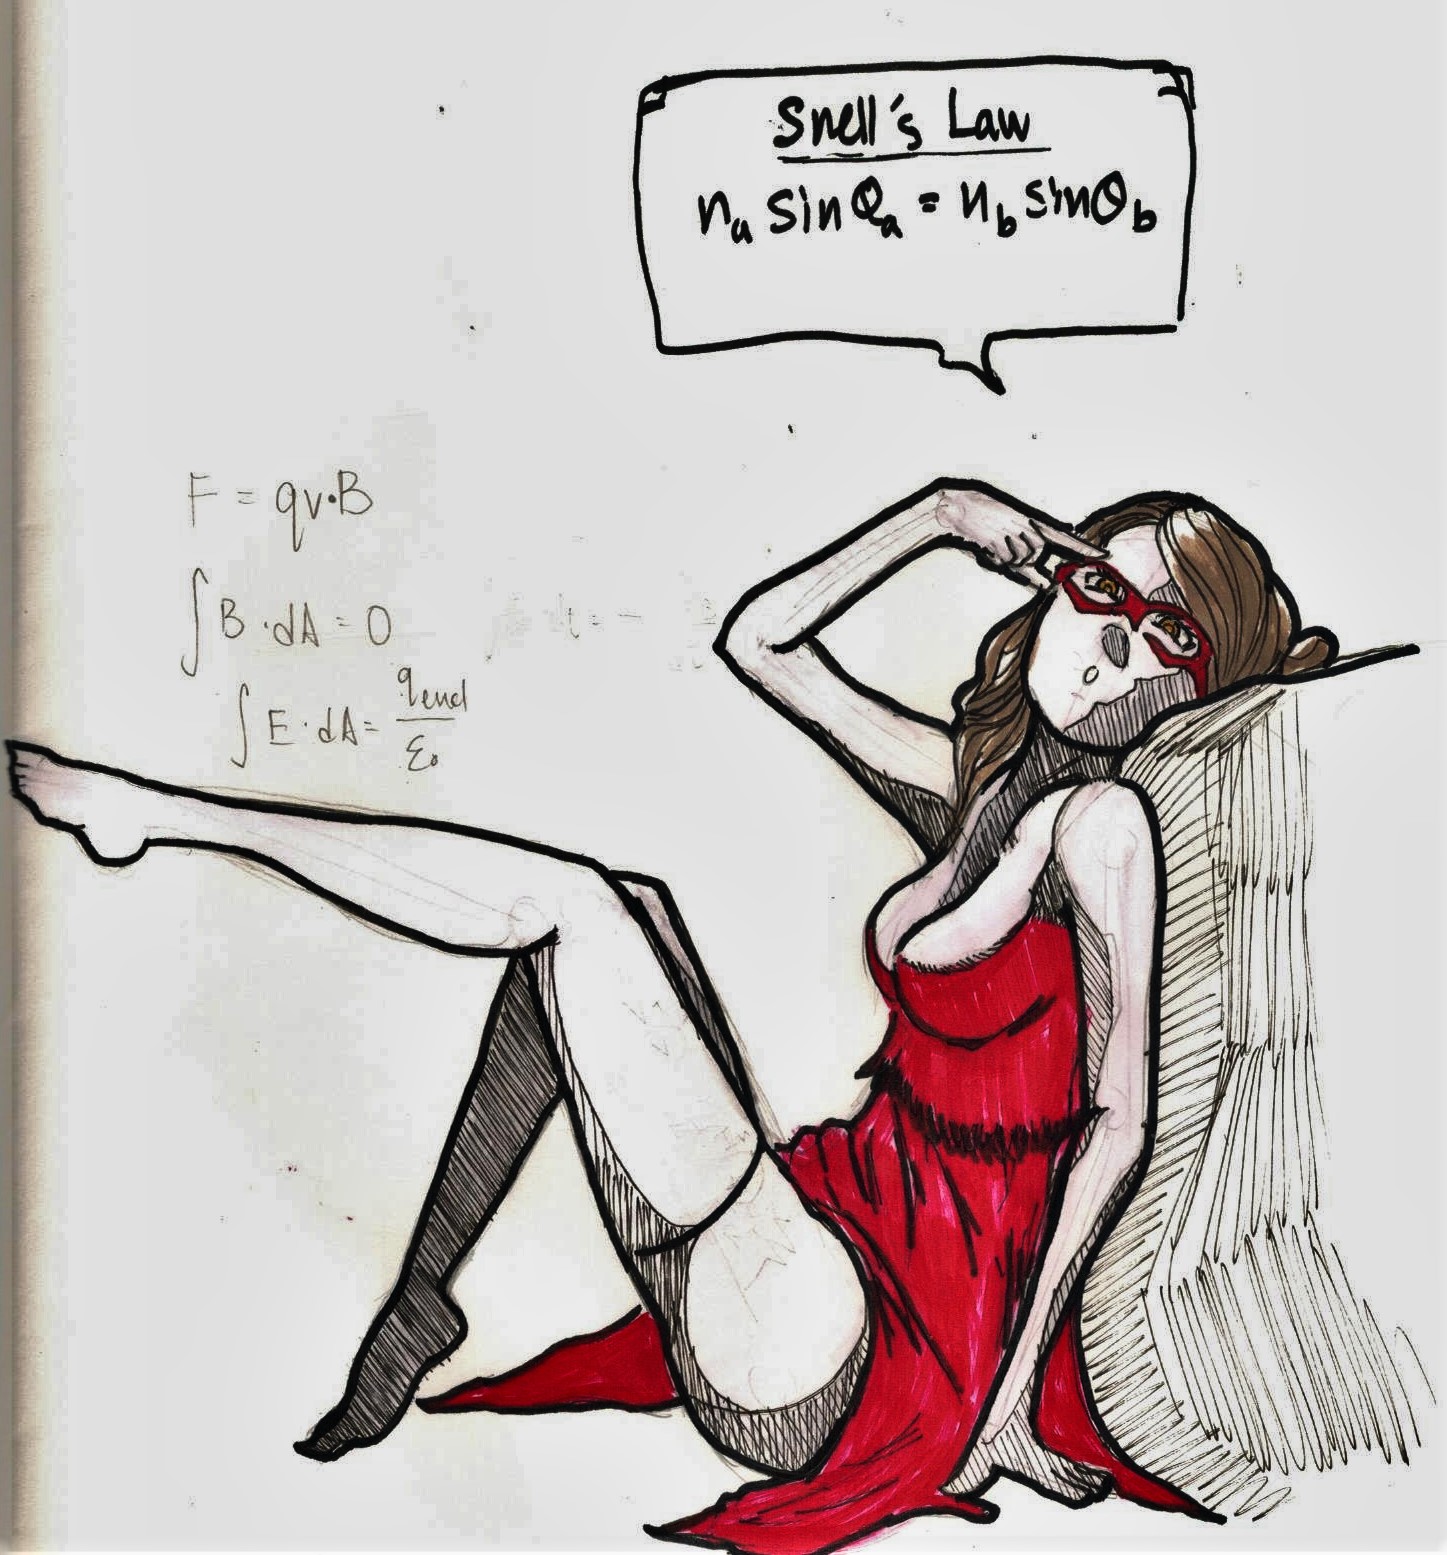 Snell's Law
nₐ sin θₐ = n_b sin θ_b
F = qv·B
∫B·dA = 0
∫E·dA = qencl/ε₀